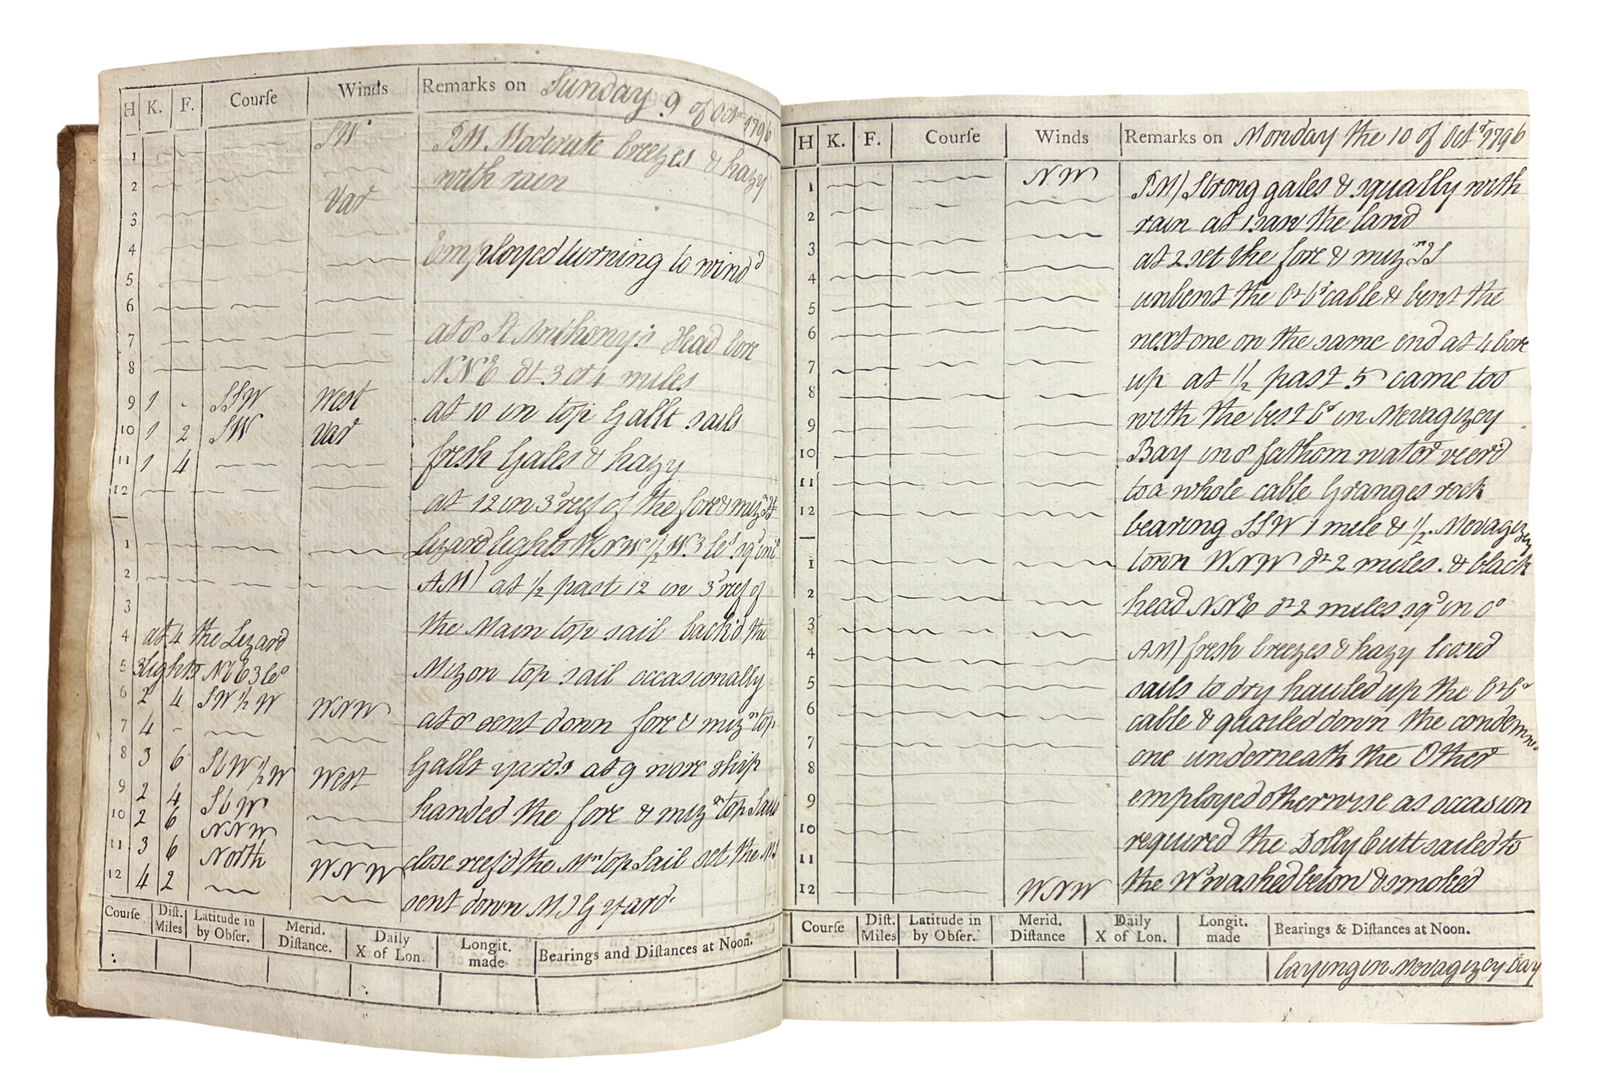 H K. F. Courſe Winds Remarks on Sunday 9 of Octr 1796
1 SW PM Moderate breezes & hazy
2 with rain
3 Var
4 Employed turning to windd
5
6
7 at 8 St Anthony's Head bore
8 NNE dt 3 or 4 miles
9 1 - SSW West at 10 in top Gallt sails
10 1 2 SW Var fresh Gales & hazy
11 1 4
12 at 12 in 3d reef of the fore & mizn TS
Lizard lights WNW 1/2 W 3 les sqd
1 AM) at 1/2 past 12 in 3d reef of
2
3 the Main top sail back'd the
4 at 4 the Lizard
5 lights NbE 3 les Mizon top sail occasionally
6 2 4 SW 1/2 W WNW at 8 sent down fore & mizn top
7 4 -
8 3 6 SbW 1/2 W West Gallt yards at 9 wore ship
9 2 4 SbW handed the fore & mizn top sails
10 2 6 NNW
11 3 6 North WNW close reef'd the Mn top Sail set the
12 4 2 sent down M T G yard
Courſe Diſt. Miles Latitude in by Obſer. Merid. Diſtance. Daily X of Lon. Longit. made Bearings and Diſtances at Noon.
H K. F. Courſe Winds Remarks on Monday the 10 of Octr 1796
1 NW PM) Strong gales & squally with
2 rain at 1 saw the land
3 at 2 set the fore & mizn TS
4 unbent the bt br cable & bent the
5
6 next one on the same end at 4 bore
7 up at 1/2 past 5 came too
8 with the best br in Mevagizey
9 Bay in 8 fathom water veer'd
10 to a whole cable Granges rock
11
12 bearing SSW 1 mile & 1/2. Mevagizey
1 town WNW dt 2 miles. & black
2 head NNE dt 2 miles sqd in
3 AM) fresh breezes & hazy loosed
4 sails to dry hauled up the bt br
5
6 cable & quoiled down the condemn
7 one underneath the Other
8 employed otherwise as occasion
9
10 required the Dolly Cutt sailed to
11
12 WNW the Wd washed below & smoked
Courſe Diſt. Miles Latitude in by Obſer. Merid. Diſtance Daily X of Lon. Longit. made Bearings & Diſtances at Noon.
laying in Mevagizey bay